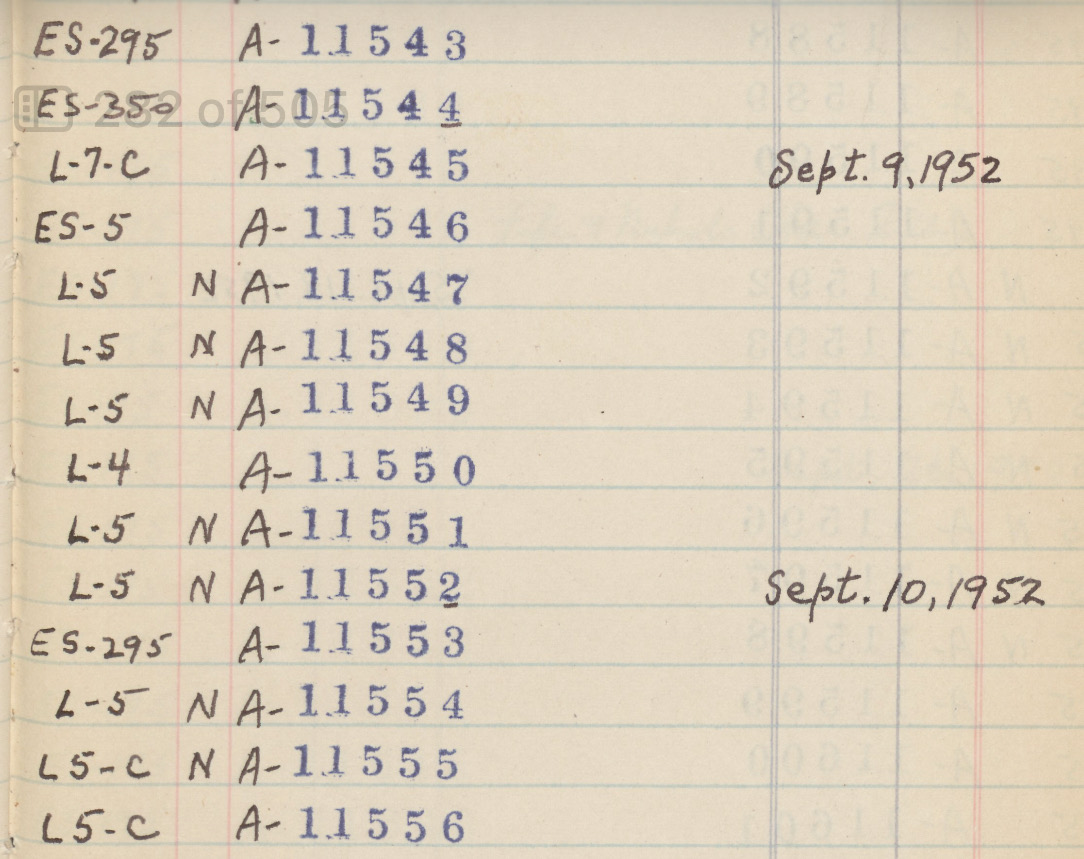 ES-295 A-11543
ES-350 A-11544
282 of 505
L-7-C A-11545 Sept. 9, 1952
ES-5 A-11546
L-5 N A-11547
L-5 N A-11548
L-5 N A-11549
L-4 A-11550
L-5 N A-11551
L-5 N A-11552 Sept. 10, 1952
ES-295 A-11553
L-5 N A-11554
L5-C N A-11555
L5-C A-11556